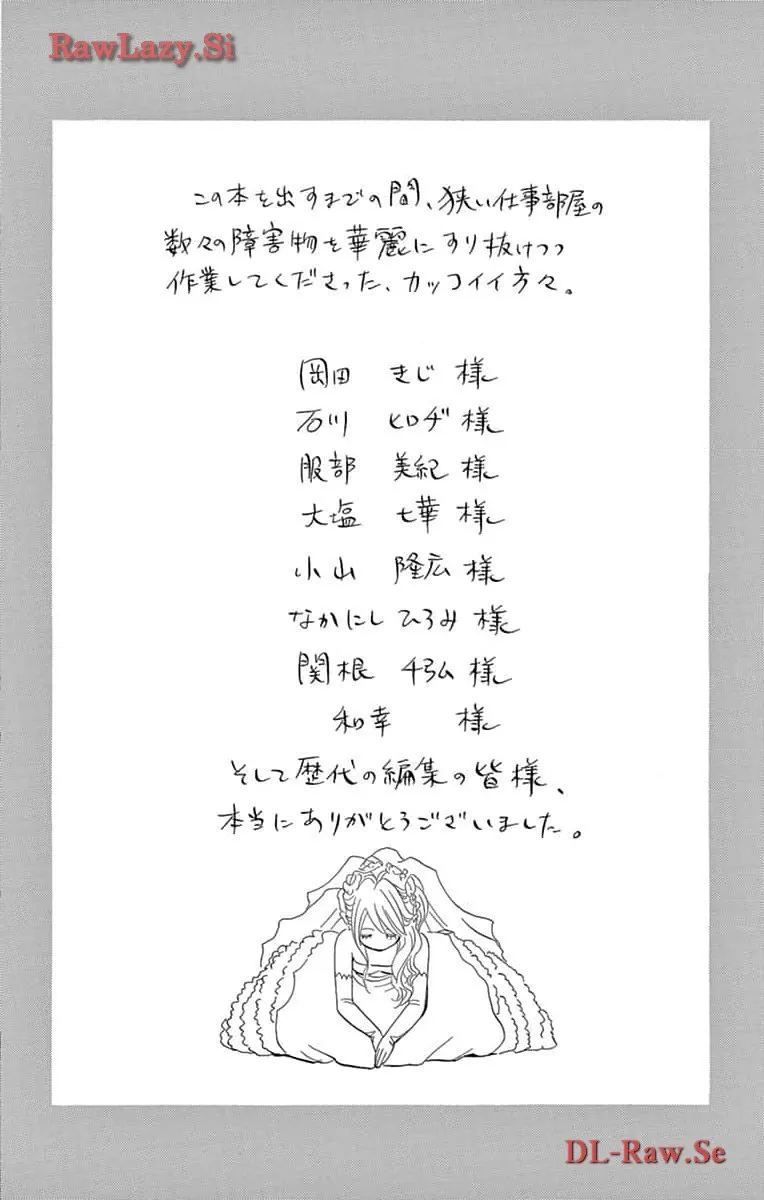 RawLazy.Si
この本を出すまでの間、狭い仕事部屋の
数々の障害物を華麗にすり抜けつつ
作業してくださった、カッコイイ方々。
岡田 きじ 様
石川 ヒロヂ 様
服部 美紀 様
大塩 七華 様
小山 隆広 様
なかにし ひろみ 様
関根 千弘 様
和幸 様
そして歴代の編集の皆様、
本当にありがとうございました。
DL-Raw.Se